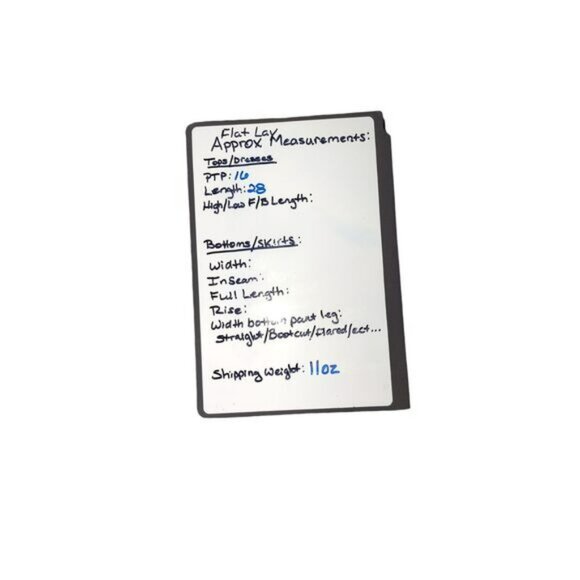 Flat Lay
Approx Measurements:
Tops/Dresses
PTP: 16
Length: 28
High/Low F/B Length:
Bottoms/Skirts:
Width:
Inseam:
Full Length:
Rise:
Width bottom pant leg:
Straight/Bootcut/Flared/ect...
Shipping Weight: 11oz